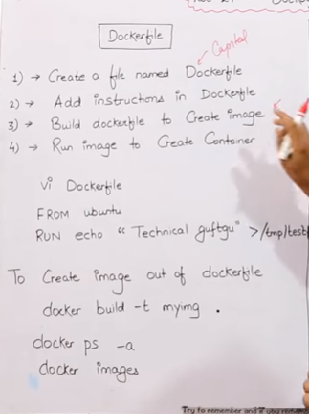 Dockerfile
Capital
1) → Create a file named Dockerfile
2) → Add instructons in Dockerfile
3) → Build dockerfile to Create image
4) → Run image to Create Container
Vi Dockerfile
FROM ubuntu
RUN echo "Technical guftgu" >/tmp/test
To Create image out of dockerfile
docker build -t myimg .
docker ps -a
docker images
Try to remember and